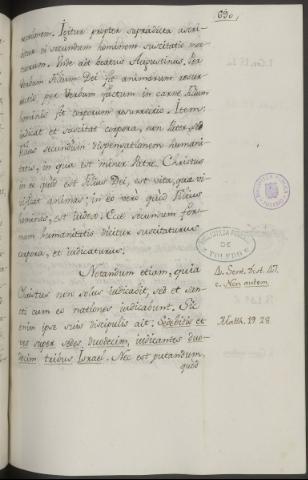 630,
rectionem. Igitur propter supradicta ascri-
bitur ei secundum hominem suscitatio mor-
tuorum. Unde ait beatus Augustinus: Per
Verbum Filium Dei fit animarum resur-
rectio, per Verbum factum in carne Filium
hominis fit corporum resurrectio. Item:
iudicat et suscitat corpora, non Pater, sed
Filius secundum dispensationem humani-
tatis, in qua est minor Patre. Christus
in eo quod est Filius Dei, est vita, quæ vi-
vificat animas, in eo vero quod Filius
hominis, est iudex. Ecce secundum for-
mam humanitatis dicitur suscitaturus
corpora, et iudicaturus.
Notandum etiam, quia
Christus non solus iudicabit, sed et san-
cti cum eo nationes iudicabunt. Si-
enim ipse suis discipulis ait: Sedebitis et
vos super sedes duodecim, iudicantes duo-
decim tribus Israel. Nec est putandum,
quod
BIBLIOTECA PUBLICA
DE
TOLEDO
c. Non autem
Matth. 19. 28.